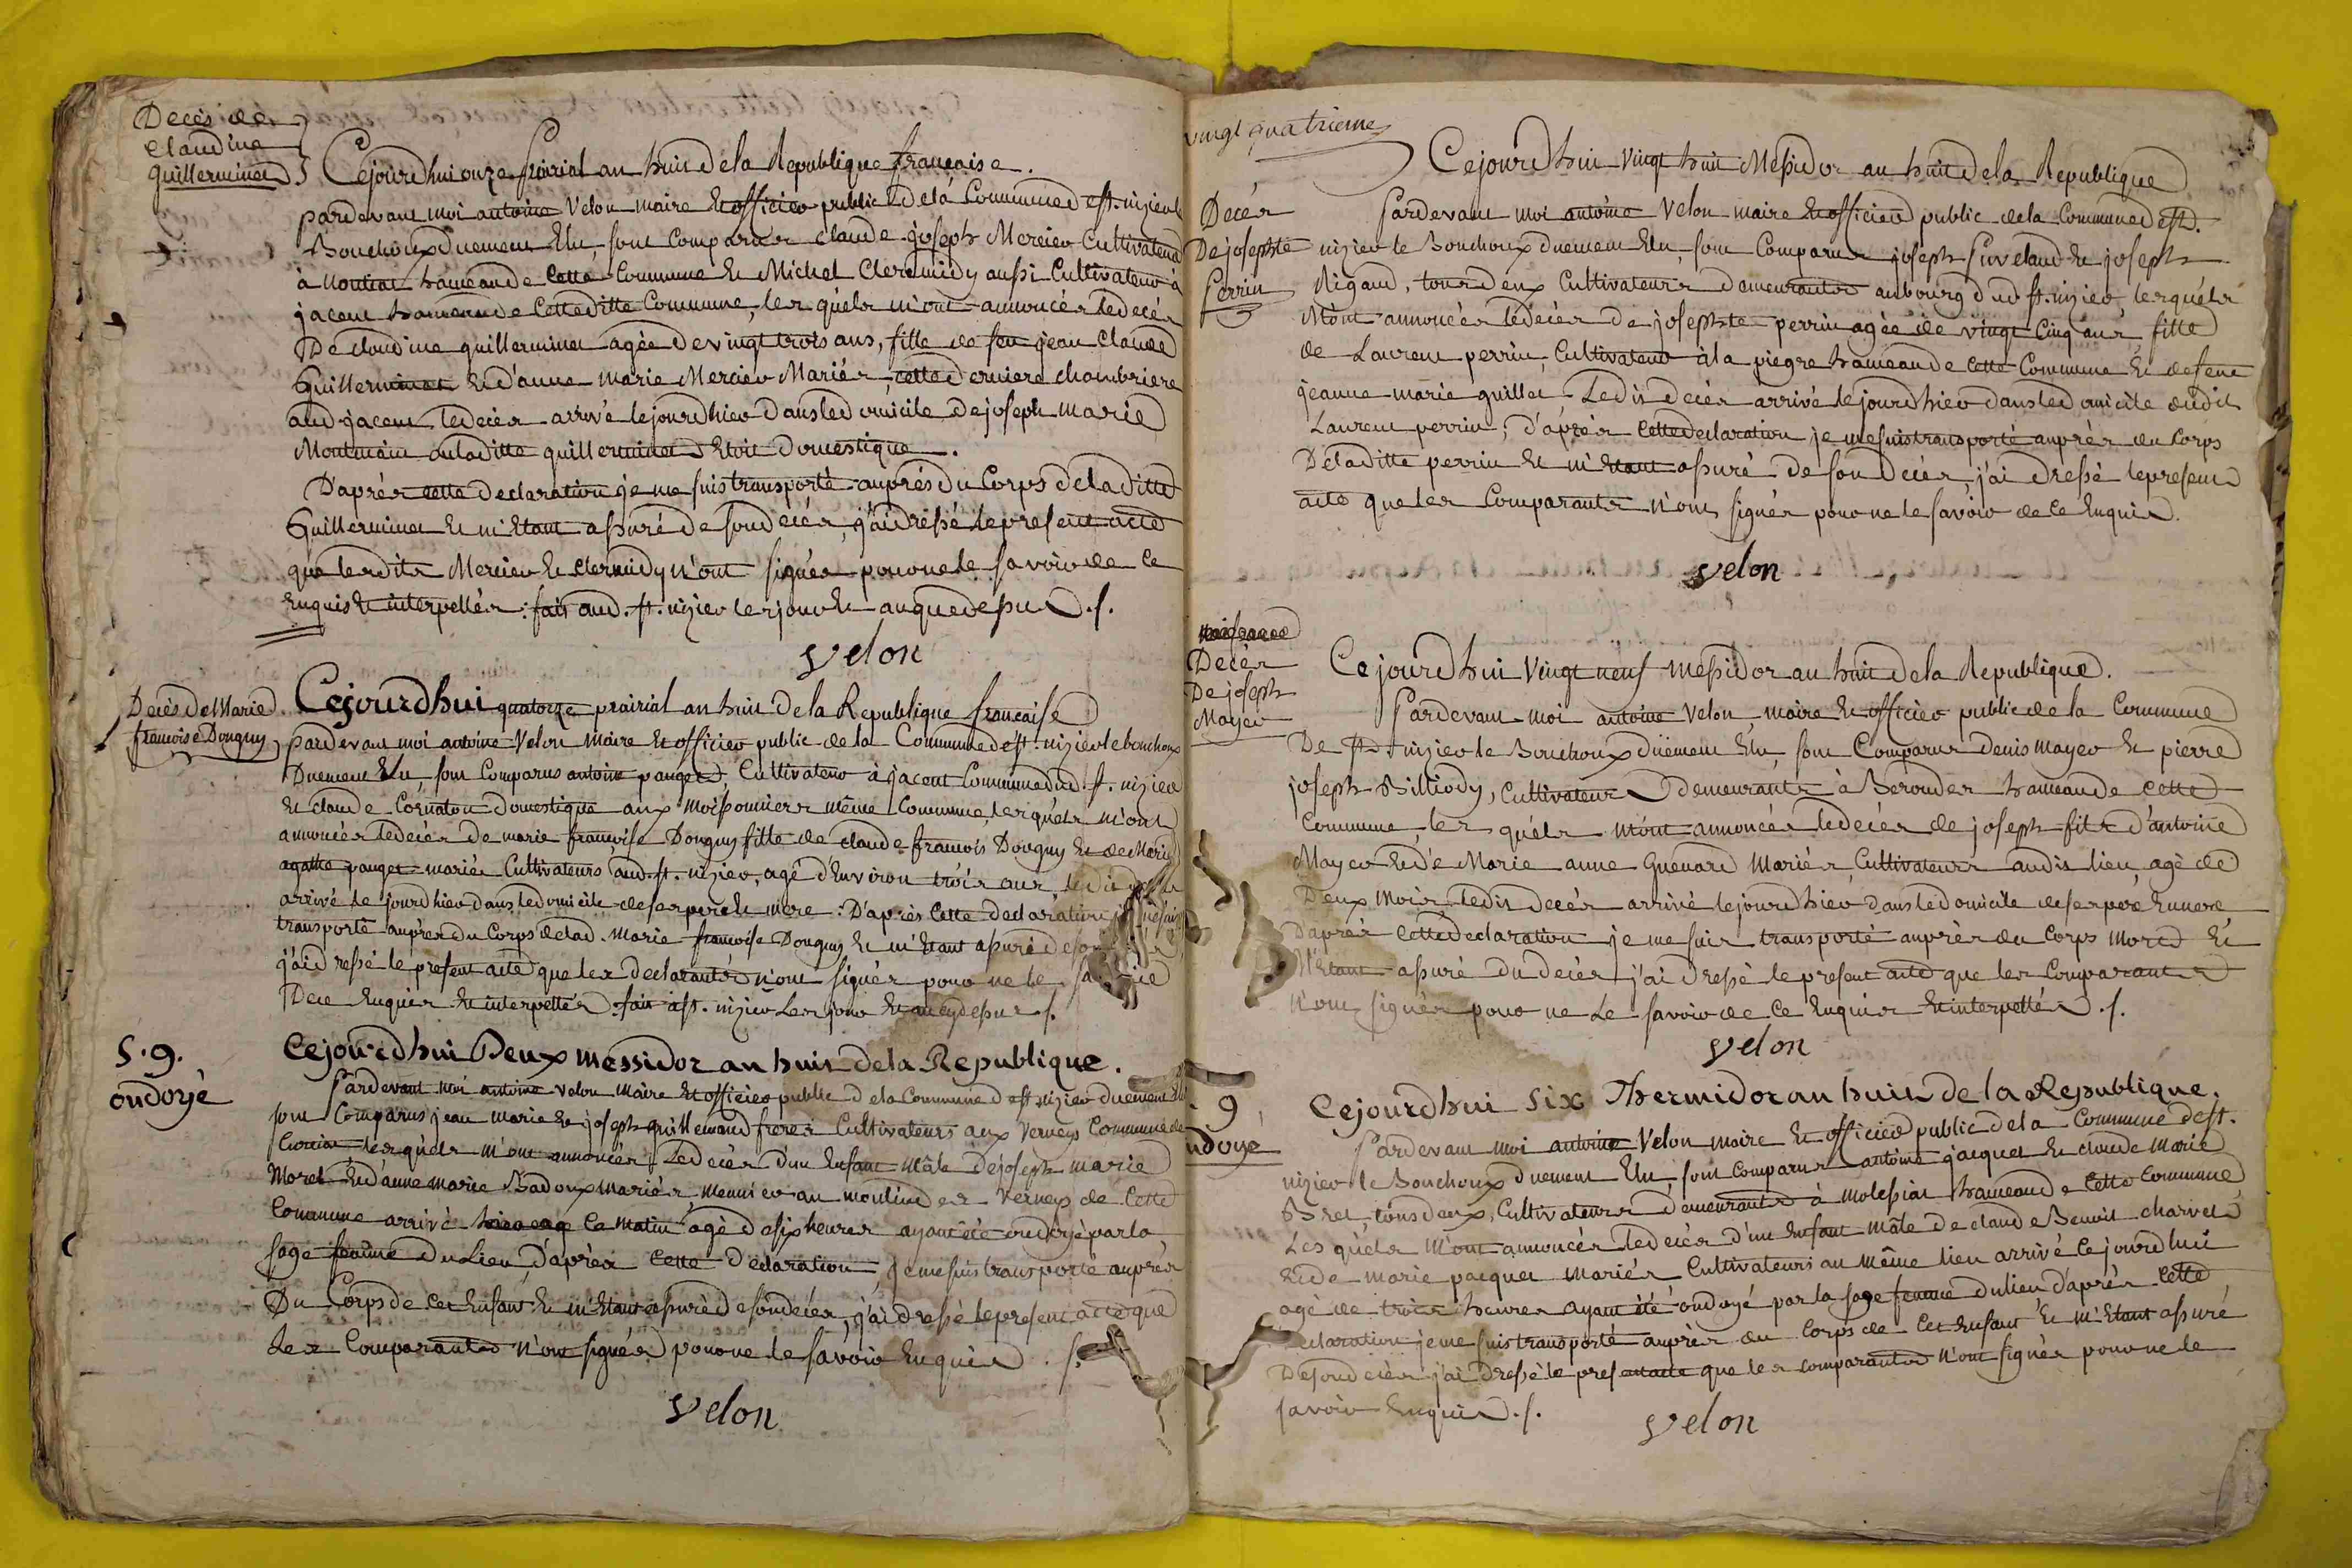 Decès de
Claudine
Guillerminet
Cejourdhui onze prairial an huit de la Republique française.
pardevant moi antoine Velon maire et officier public de la Commune de st. nizier le
Bouchoux duement Elu sont Comparus claude joseph Mercier Cultivateur
à Montiat hameau de Cette Commune et Michel Clermidy aussi Cultivateur à
jacent hameau de Cetteditte Commune, les quels m'ont annoncés le decès
De claudine guillerminet agée de vingt trois ans, fille de feu jean Claude
Guillerminet et d'anne Marie Mercier Mariés, cette derniere chambriere
aud. jacent, le decès arrivé le jourdhier dans le domicile de joseph marie
Montmain ou laditte guillerminet Etoit domestique.
D'après cette declaration je me suis transporté auprès du Corps de laditte
Guillerminet et m'Etant assuré de son decès, j'ai dressé le present acte
que lesdits Mercier et Clermidy n'ont signés pour ne le savoir de ce
Enquis et interpellés. fait aud. st. nizier les jour et an que dessus ./.
Velon
Decès de Marie
francoise Dougny
Cejourdhui quatorze prairial an huit de la Republique francaise
pardevant moi antoine Velon Maire et officier public de la Commune de st. nizier le bouchoux
Duement Elu, sont Comparus antoine panget, Cultivateur à jacent Commune dud. st. nizier
et claude Cornaton domestique aux Moissonniers même Commune, les quels m'ont
annoncés le decès de marie francoise Dougny fille de claude francois Dougny et de Marie
agathe panget mariés Cultivateurs aud. st. nizier, agé d'Environ trois ans, ledit
arrivé le jourdhier dans le domicile de ses pere et mere : D'après Cette declaration je me suis
transporté auprès du Corps de lad. Marie francoise Dougny et m'Etant assuré de son
j'ai dressé le present acte que les declarants n'ont signés pour ne le
De ce Enquis et interpellés. fait à st. nizier Les jour et an cydessus ./.
S. 9.
ondoyé
Cejourdhui Deux Messidor an huit de la Republique.
Pardevant moi antoine velon Maire et officier public de la Commune de st nizier duement Elu
sont Comparus jean marie et joseph guillemaud freres Cultivateurs aux Verneys Commune de
lesquels m'ont annoncés Le decès d'un Enfant Mâle de joseph marie
Morel et d'anne marie Badoux mariés, Meunier au moulin des Verneys de Cette
Commune arrivé Ce matin agé de six heures ayant été ondoyé par la
sage femme du Lieu, d'après Cette déclaration, je me suis transporté auprès
Du Corps de Cet Enfant et m'Etant assuré de son decès, j'ai dressé le present acte que
Les Comparants n'ont signés pour ne le savoir Enquis ./.
Velon
vingt quatrieme
Decès
De josephte
Perrin
Cejourdhui vingt huit Messidor an huit de la Republique
Pardevant moi antoine Velon maire et officier public de la Commune de st.
nizier le Bouchoux duement Elu, sont Comparus joseph et joseph
Rigaud, tous deux Cultivateurs demeurants au bourg dud. st. nizier, les quels
M'ont annoncés le decès de josephte perrin agée de vingt cinq ans fille
de Laurent perrin, Cultivateur à la piegre hameau de Cette Commune et de feue
jeanne marie guillet. Ledit decès arrivé le jourdhier dans le domicile dudit
Laurent perrin, d'après Cette declaration, je me suis transporté auprès du Corps
De laditte perrin et m'Etant assuré de son decès j'ai dressé le present
acte que les Comparants n'ont signés pour ne le savoir de ce Enquis.
Velon
Decès
De joseph
Mayer
Cejourdhui vingt neuf messidor an huit de la Republique.
Pardevant moi antoine Velon Maire et officier public de la Commune
De st. nizier le Bouchoux duëment Elu, sont Comparus denis mayer et pierre
joseph Billiody, Cultivateurs demeurants à Berouder hameau de cette
Commune, les quels m'ont annoncés le decès de joseph fils d'antoine
Mayer et de Marie anne Guenard Mariés, Cultivateurs audit lieu, agé de
Deux Mois, ledit decès arrivé le jourdhier dans le domicile de ses pere et mere
D'après cette declaration je me suis transporté auprès du Corps Mort et
M'Etant assuré du decès j'ai dressé le present acte que les Comparants
n'ont signés pour ne Le savoir de Ce Enquis et interpellés ./.
Velon
9
ndoyé
Cejourdhui Six Thermidor an huit de la Republique.
Pardevant moi antoine Velon maire et officier public de la Commune de st.
nizier le Bouchoux duement Elu, sont Comparus antoine jacquet et claude Marie
Bret, tous deux, Cultivateurs demeurants à Molessiat hameau de Cette Commune
Les quels M'ont annoncés le decès d'un Enfant Mâle de claude Benoit charvet
et de Marie pacquet Mariés Cultivateurs au même lieu arrivé Cejourdhui
agé de trois heures ayant été ondoyé par la sage femme du lieu d'après Cette
declaration je me suis transporté auprès du Corps de Cet Enfant et m'Etant assuré
De son decès j'ai dressé le present acte que les comparants n'ont signés pour ne le
savoir Enquis ./.
Velon